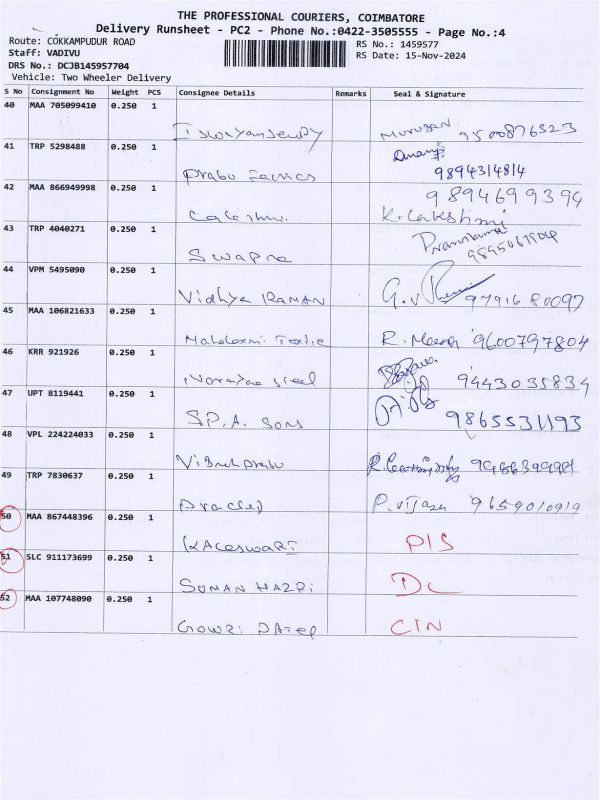 THE PROFESSIONAL COURIERS, COIMBATORE
Delivery Runsheet - PC2 - Phone No.:0422-3505555 - Page No.:4
Route: COKKAMPUDUR ROAD RS No.: 1459577
Staff: VADIVU RS Date: 15-Nov-2024
DRS No.: DCJB145957704
Vehicle: Two Wheeler Delivery
S No Consignment No Weight PCS Consignee Details Remarks Seal & Signature
40 MAA 705099410 0.250 1
Murugan. 9500876323
41 TRP 5298488 0.250 1
Prabu 9894314814
42 MAA 866949998 0.250 1 9894699394
K. Lakshmi
43 TRP 4040271 0.250 1
Swapna
44 VPM 5495090 0.250 1
Vidhya RAMAN G.V 9791680097
45 MAA 106821633 0.250 1
Mahalaxmi R. Meena 9600797804
46 KRR 921926 0.250 1
Steel 9443035834
47 UPT 8119441 0.250 1
S.P.A. Sons 9865531193
48 VPL 224224033 0.250 1
49 TRP 7830637 0.250 1
P. Vijaya 9659010919
50 MAA 867448396 0.250 1
KALESWARI P/S
51 SLC 911173699 0.250 1
SUMAN HAZRI DL
52 MAA 107748090 0.250 1
GOWRI PATEL C/N